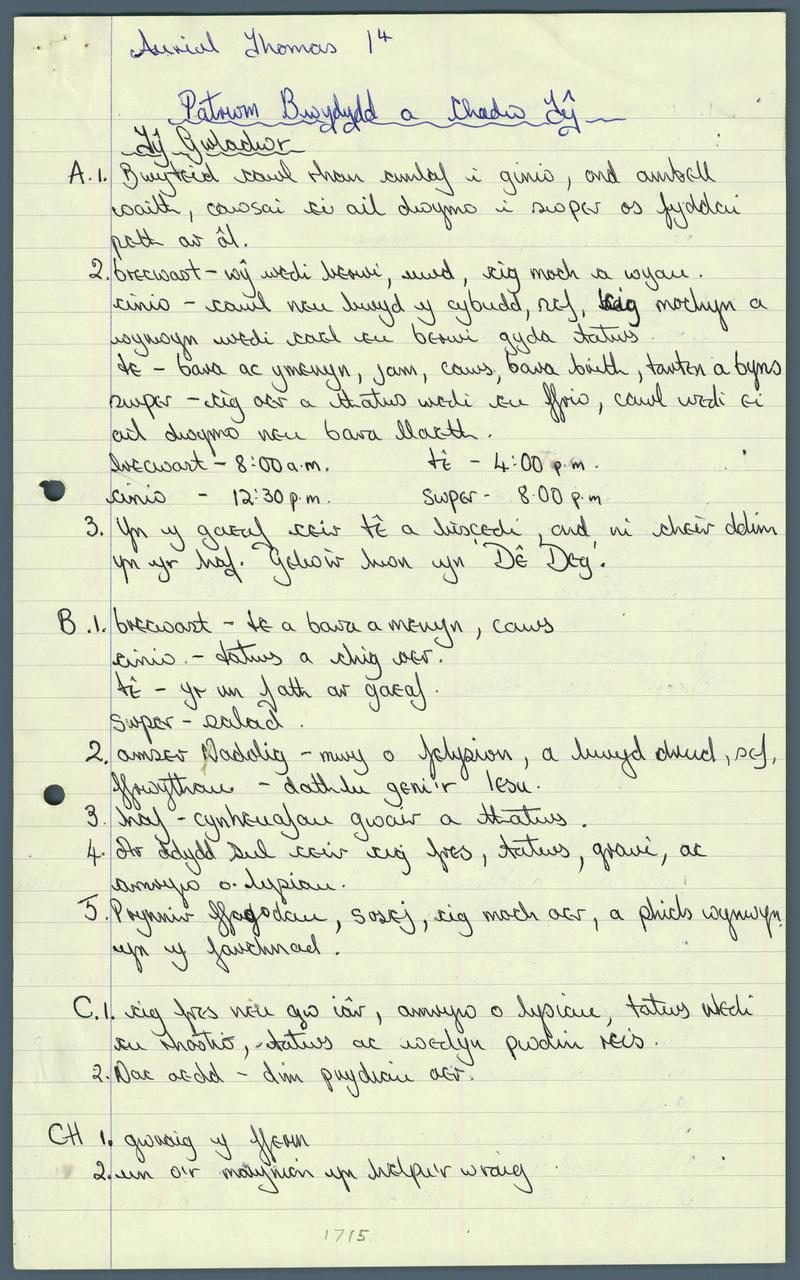 Auriol Thomas 1⁴
Patrwm Bwydydd a Chadw Tŷ
Tŷ Gwladwr
A.1. Bwyteid cawl rhan amlaf i ginio, ond ambell
waith, cawsai ei ail dwymo i swper os fyddai
peth ar ôl.
2. brecwast - wŷ wedi berwi, uwd, cig moch a wyau.
cinio - cawl neu bwyd y cybudd, sef, cig mochyn a
wynwyn wedi cael eu berwi gyda tatws
tê - bara ac ymenyn, jam, caws, bara brith, tarten a byns
swper - cig oer a thatws wedi eu ffrio, cawl wedi ei
ail dwymo neu bara llaeth.
brecwast - 8:00 a.m. tê - 4:00 p.m.
cinio - 12:30 p.m. swper - 8.00 p.m
3. Yn y gaeaf ceir tê a biscedi, ond ni cheir ddim
yn yr haf. Gelwir hwn yn 'Dê Deg'.
B.1. brecwast - te a bara a menyn, caws
cinio - tatws a chig oer.
tê - yr un fath ar gaeaf.
swper - salad.
2. amser Nadolig - mwy o felysion, a bwyd drud, sef,
ffrwythau - dathlu geni'r Iesu.
3. haf - cynheuafau gwair a thatws.
4. Ar ddydd Sul ceir cig ffres, tatws, gravi, ac
amryw o lysiau.
5. Prynnir ffagodau, sosej, cig moch oer, a phicls wynwyn
yn y farchnad.
C.1. cig ffres neu gw iâr, amryw o lysiau, tatws wedi
eu rhostio, tatws ac wedyn pwdin reis.
2. Nac oedd - dim prydiau oer.
CH 1. gwraig y fferm
2. un o'r morynion yn helpu'r wraig
1715